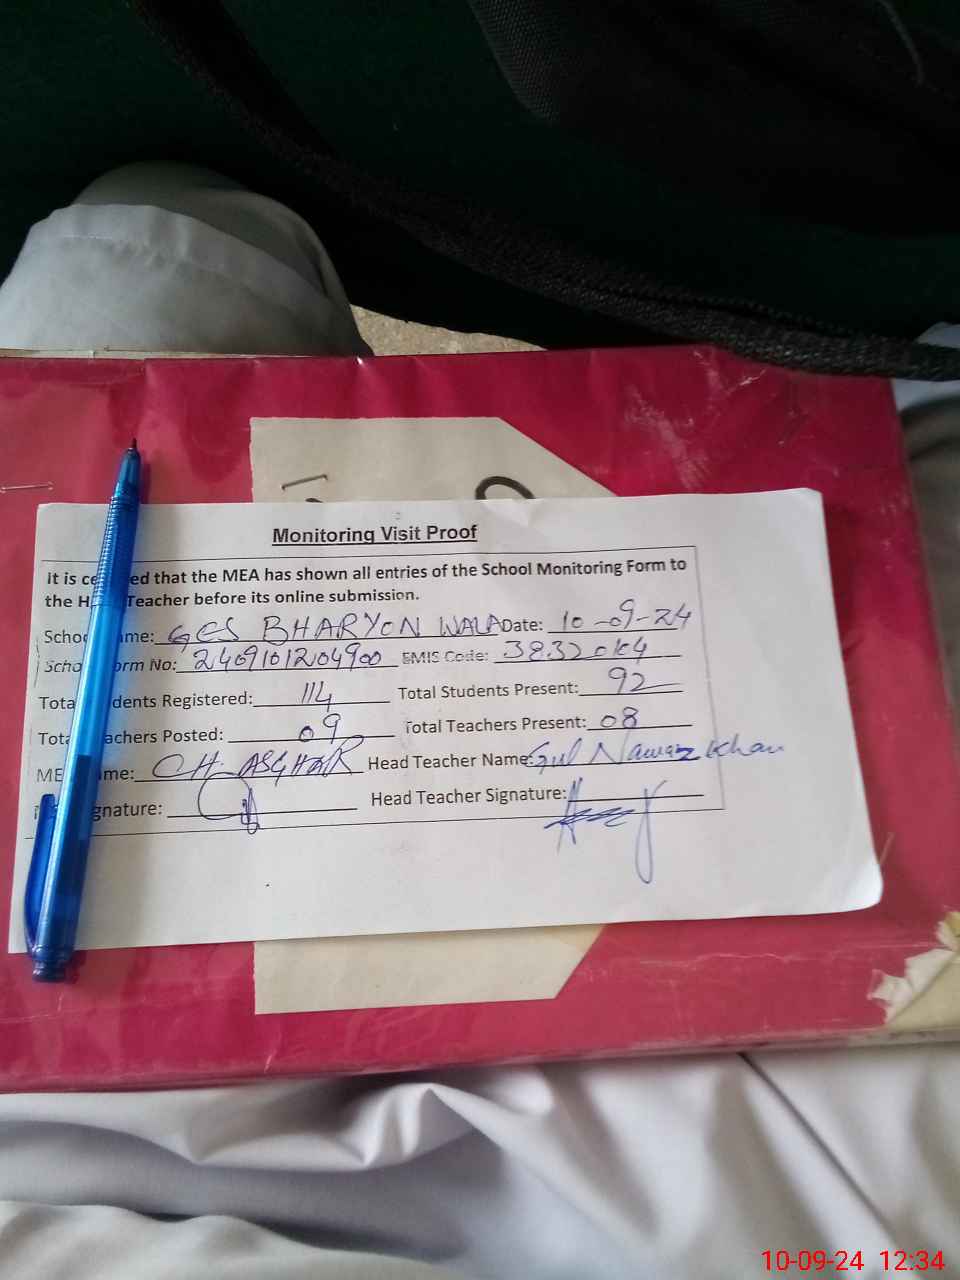 Monitoring Visit Proof
It is ce ed that the MEA has shown all entries of the School Monitoring Form to
the H Teacher before its online submission.
Schoo ame: GES BHARYON WALA Date: 10-09-24
Scho orm No: 2409101204900 EMIS Code:
Tota dents Registered: 114 Total Students Present: 92
Tota achers Posted: 09 Total Teachers Present: 08
ME me: CH. ASGHAR Head Teacher Name: Gul Nawaz Khan
gnature: Head Teacher Signature:
10-09-24 12:34